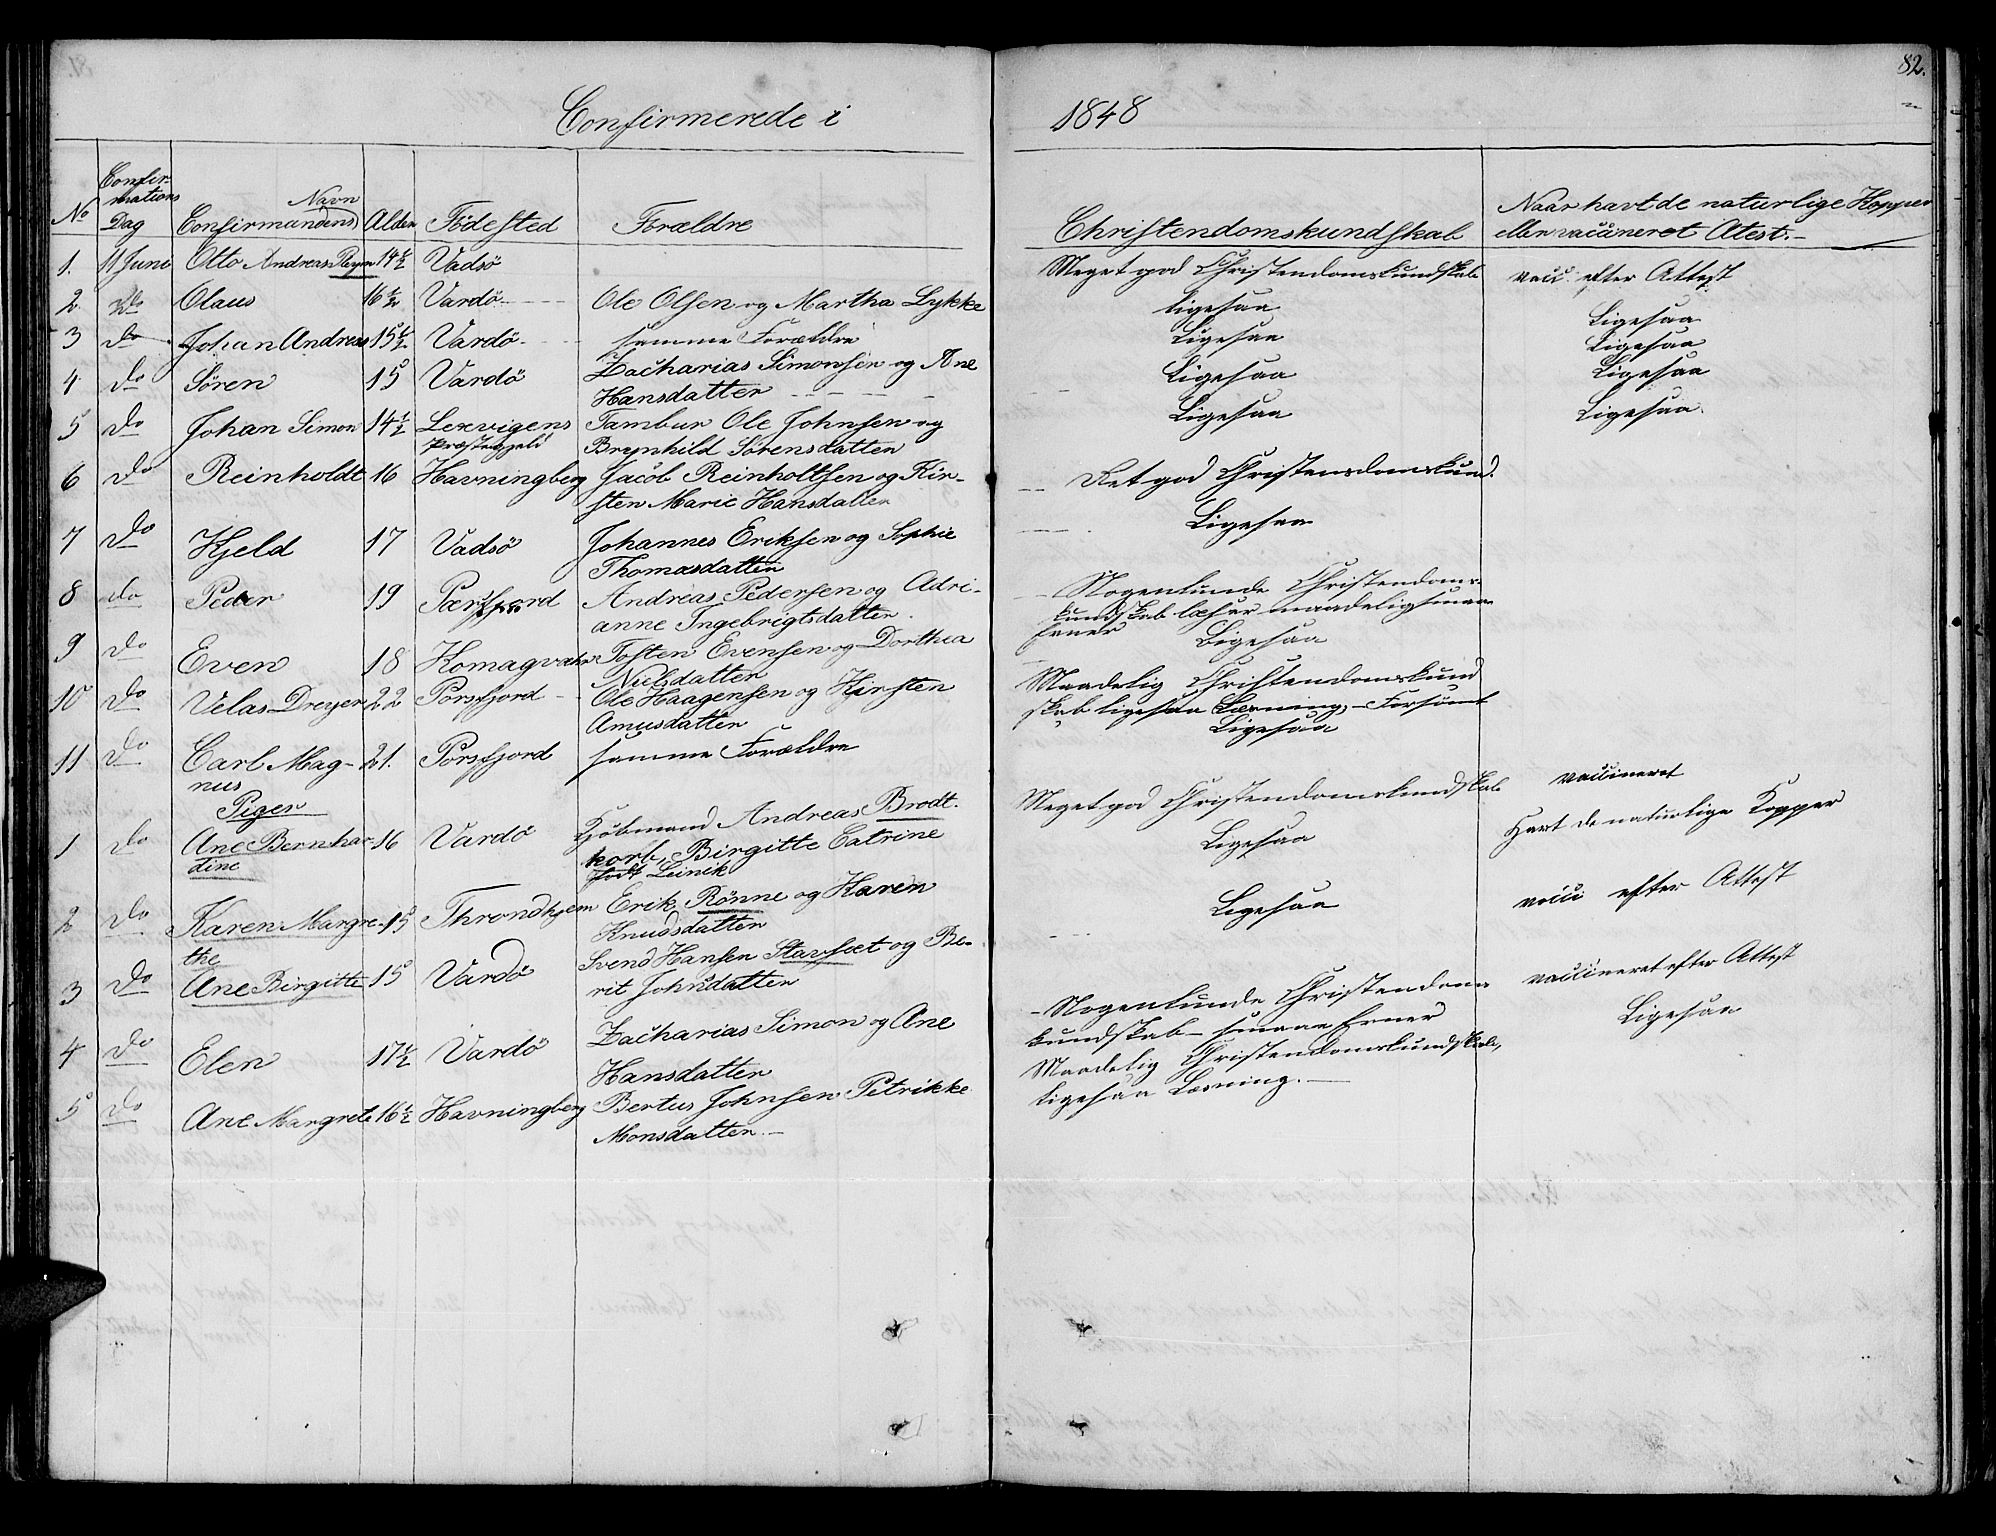 82.
Confirmerede i 1848
No
Confir-
mations
Dag
Navn
Confirmandens
Alder
Födested
Forældre
Christendomskundskab
Naar havt de naturlige Kopper
eller vaccineret Atest.-
1. 11 Juni Otto Andreas 14½ Vadsö Meget god Christendomskundskab vacc. efter Attest
2. Do Olaus 16½ Vardö Ole Olsen og Martha Lykke ligesaa Ligesaa
3 do Johan Andreas 15½ Vardö samme Forældre Ligesaa Ligesaa
4 do Sören 15 Vardö Zacharias Simonsen og Ane Ligesaa Ligesaa
Hansdatter
5 do Johan Simon 14½ Lexvigens Tambur Ole Johnsen og Ligesaa Ligesaa
Præstegjeld Brynhild Sörensdatter
6 do Reinholdt 16 Havningberg Jacob Reinholtsen og Kir- Ret god Christensdomskund.
sten Marie Hansdatter
7 do Kjeld 17 Vadsö Johannes Eriksen og Sophie Ligesaa
Thomasdatter
8 do Peder 19 Persfjord Andreas Pedersen og Adri- Nogenlunde Christendoms-
anne Ingebrigtsdatter. kundskab læser maadelig smaae
Evner
9 do Even 18 Komagvær Tosten Evensen og Dorthea Ligesaa
Nielsdatter
10 do Velas Dreyer 22 Porsfjord Ole Haagensen og Kjirsten Maadelig Christendomskund
Amusdatter skab ligesaa Læsning,- Forsömt
11 do Carl Mag- 21. Porsfjord samme Forældre Ligesaa
nus
Piger
1 do Ane Bernhar- 16 Vardö Kjöbmand Andreas Brodt- Meget god Christendomskundskab vaccineret
dine korb, Birgitte Catrine
födt Leinik
2 do Karen Margre- 15 Throndhjem Erik Rönne og Karen Ligesaa Havt de naturlige Kopper
the Knudsdatter
3 do Ane Birgitte 15 Vardö Svend Hansen Stavsæt og Be- Ligesaa vacci efter Attest
rit Johnsdatter
4 do Elen 17½ Vardö Zacharias Simon og Ane Nogenlunde Christendoms vaccineret efter Attest
Hansdatter kundskab- smaae Evner
5 do Ane Margrete 16½ Havningberg Bertus Johnsen Petrikke Maadelig Christendomskundskab, Ligesaa
Monsdatter.- ligesaa Læsning.-